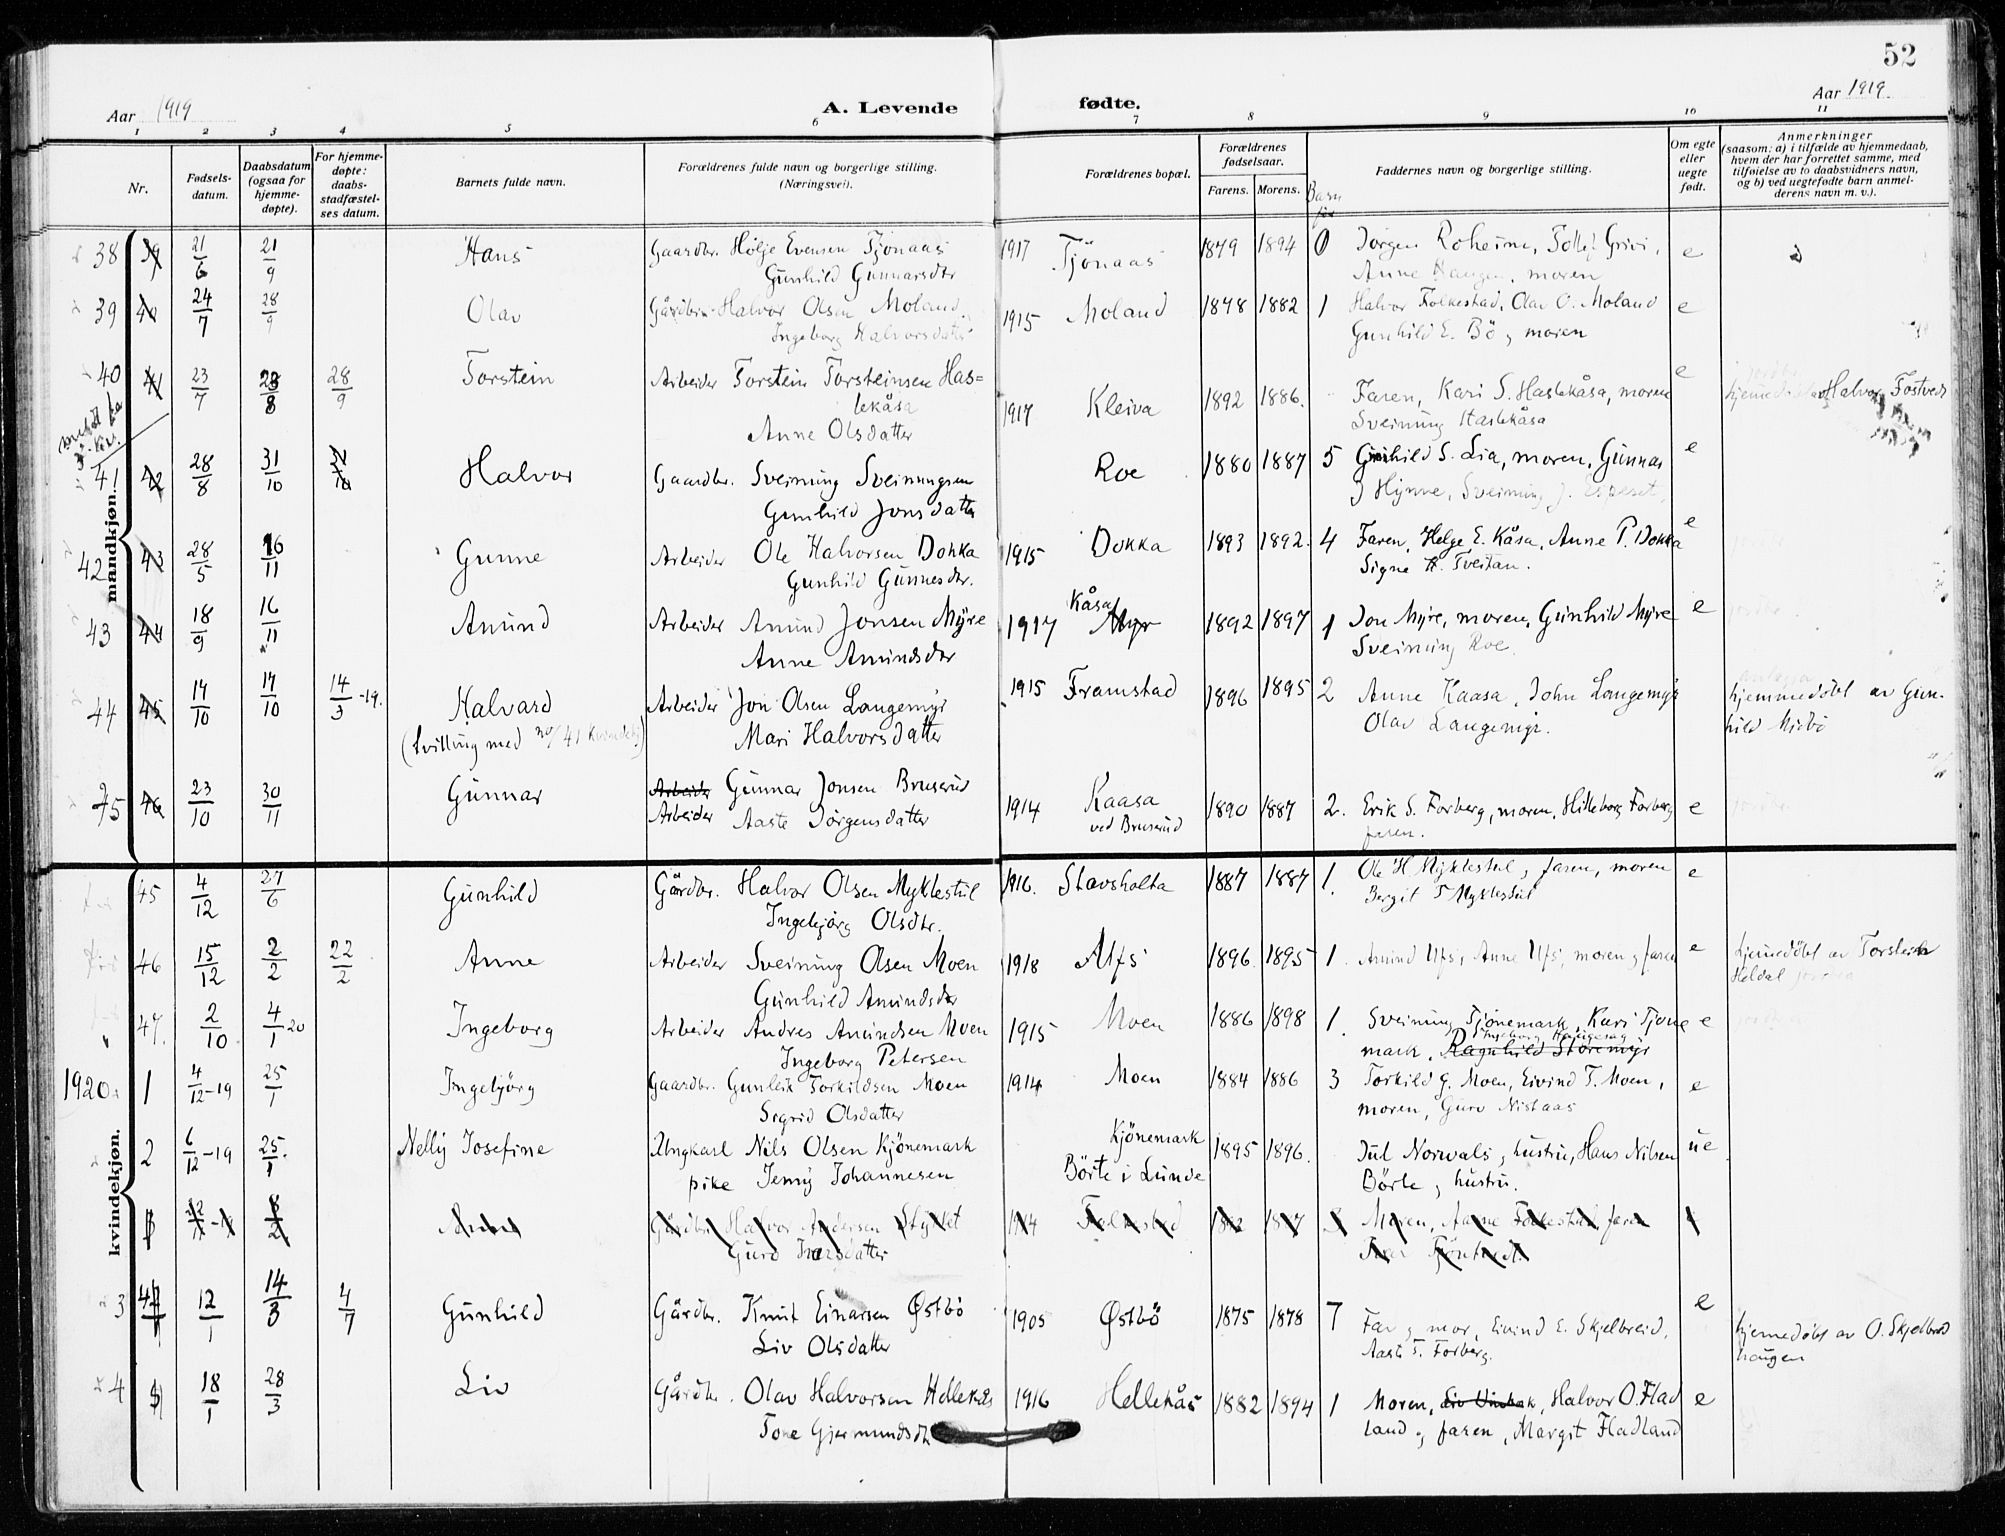 52
Aar 1919
A. Levende fødte.
Aar 1919
1 2 3 4 5 6 7 8 9 10 11
Nr.
Fødsels-
datum.
Daabsdatum
(ogsaa for
hjemme-
døpte).
For hjemme-
døpte:
daabs-
stadfæstel-
ses datum.
Barnets fulde navn.
Forældrenes fulde navn og borgerlige stilling.
(Næringsvei).
Forældrenes bopæl.
Forældrenes
fødselsaar.
Farens. Morens.
Barn
før
Faddernes navn og borgerlige stilling.
Om egte
eller
uegte
født.
Anmerkninger
(saasom: a) i tilfælde av hjemmedaab,
hvem der har forrettet samme, med
tilføielse av to daabsvidners navn,
og b) ved uegtefødte barn anmel-
derens navn m. v.).
mandkjøn.
38 39 21/6 21/9 Hans Gaardbr. Hølje Evensen Tjønaas 1917 Tjönaas 1879 1894 0 Jørgen Roheim, e
Gunhild Gunnarsdtr Anne Haugen, moren
39 40 24/7 28/9 Olav Gårdbr. Halvor Olsen Moland 1915 Moland 1878 1882 1 Halvor Folkestad, Olav O. Moland e
Ingeborg Halvorsdatter Gunhild E. Bö, moren
40 41 23/7 28/9 Torstein Arbeider Torstein Torsteinsen Has= 1917 Kleiva 1892 1886. Faren, Kari S. Haslekåsa, moren e Halvor Tostveds
lekåsa Sveinung Haslekåsa
Anne Olsdatter
41 42 28/8 31/10 Halvor Gaardbr. Sveinung Sveinungsen Roe 1880 1887 5 Gunhild S. Lia, moren, Gunnar e
Gunhild Jonsdatter J Hynne, Sveinung J. Espeset,
42 43 28/5 16/11 Gunne Arbeider Ole Halvorsen Dokka 1915 Dokka 1893 1892. 4 Faren, Helge E. Kåsa, Anne P. Dokka e
Gunhild Gunnesdtr. Signe H. Tveitan.
43 44 18/9 16/11 Amund Arbeider Amund Jonsen Myre 1917 Kåsa Myr 1892 1897 1 Jon Myre, moren, Gunhild Myre e
Anne Amundsdtr Sveinung Roe.
44 45 17/10 17/10 14/3 -19. Halvard Arbeider Jon Olsen Langemyr 1915 Framstad 1896 1895 2 Anne Kaasa, John Langemyr hjemmedöbt av Gun-
(tvilling med no/41 Kvindekj.) Mari Halvorsdatter Olav Langemyr. hild
45 46 23/10 30/11 Gunnar Arbeider Gunnar Jonsen Bruserud 1914 Kaasa 1890 1887 2. Erik S. Forberg, moren, Hilleborg Forberg e
Arbeider Aaste Jörgensdatter ved Bruserud faren.
kvindekjøn.
45 4/12 27/6 Gunhild Gårdbr. Halvor Olsen Myklestul 1916. Stavsholta 1887 1887 1. Ole H Myklestul, faren, moren e
Ingebjörg Olsdtr. Bergit T Myklestul
46 15/12 2/2 22/2 Anne Arbeider Sveinung Olsen Moen 1918 Ufs 1896 1895 1. Amund Ufs, Anne Ufs, moren, faren e hjemedöbt av Torstein
Gunhild Amundsdtr Heldal
47. 2/10 4/1 20 Ingeborg Arbeider Andres Amundsen Moen 1915 Moen 1886 1898 1. Sveinung Tjönemark, Kari Tjone e
Ingeborg Petersen mark, Ragnhild Storemyr
1920 1 4/12-19 25/1 Ingebjörg Gaardbr. Gunleik Torkildsen Moen 1914 Moen 1884 1886 3 Torkild G. Moen, Eivind T. Moen, e
Sigrid Olsdatter moren, Guro Nistaas
2 6/12-19 25/1 Nelly Josefine Ungkarl Nils Olsen Kjönemark Kjönemark 1895 1896. Jul Norwals, hustru, Hans Nilsen ue
pike Jenny Johannesen Börte i Lunde Börte, hustru.
Gårdbr. Halvor Andersen 1914 Folkestad Moren, Aasne Folkestad, faren
Guro Ivarsdatter
3 12/1 14/3 4/7 Gunhild Gårdbr. Knut Einarsen Østbö 1905 Østbö 1875 1878 7 Far, mor, Eivind E. Skjelbreid, e hjemedöbt av O. Skjelbred
Liv Olsdatter Aaste T. Forberg. haugen
4 18/1 28/3 Liv Gårdbr. Olav Halvorsen Hellekås 1916 Hellekås 1882 1894 1 Moren, Halvor O. Flad e
Tone Gjermundsdtr land, faren, Margit Fladland